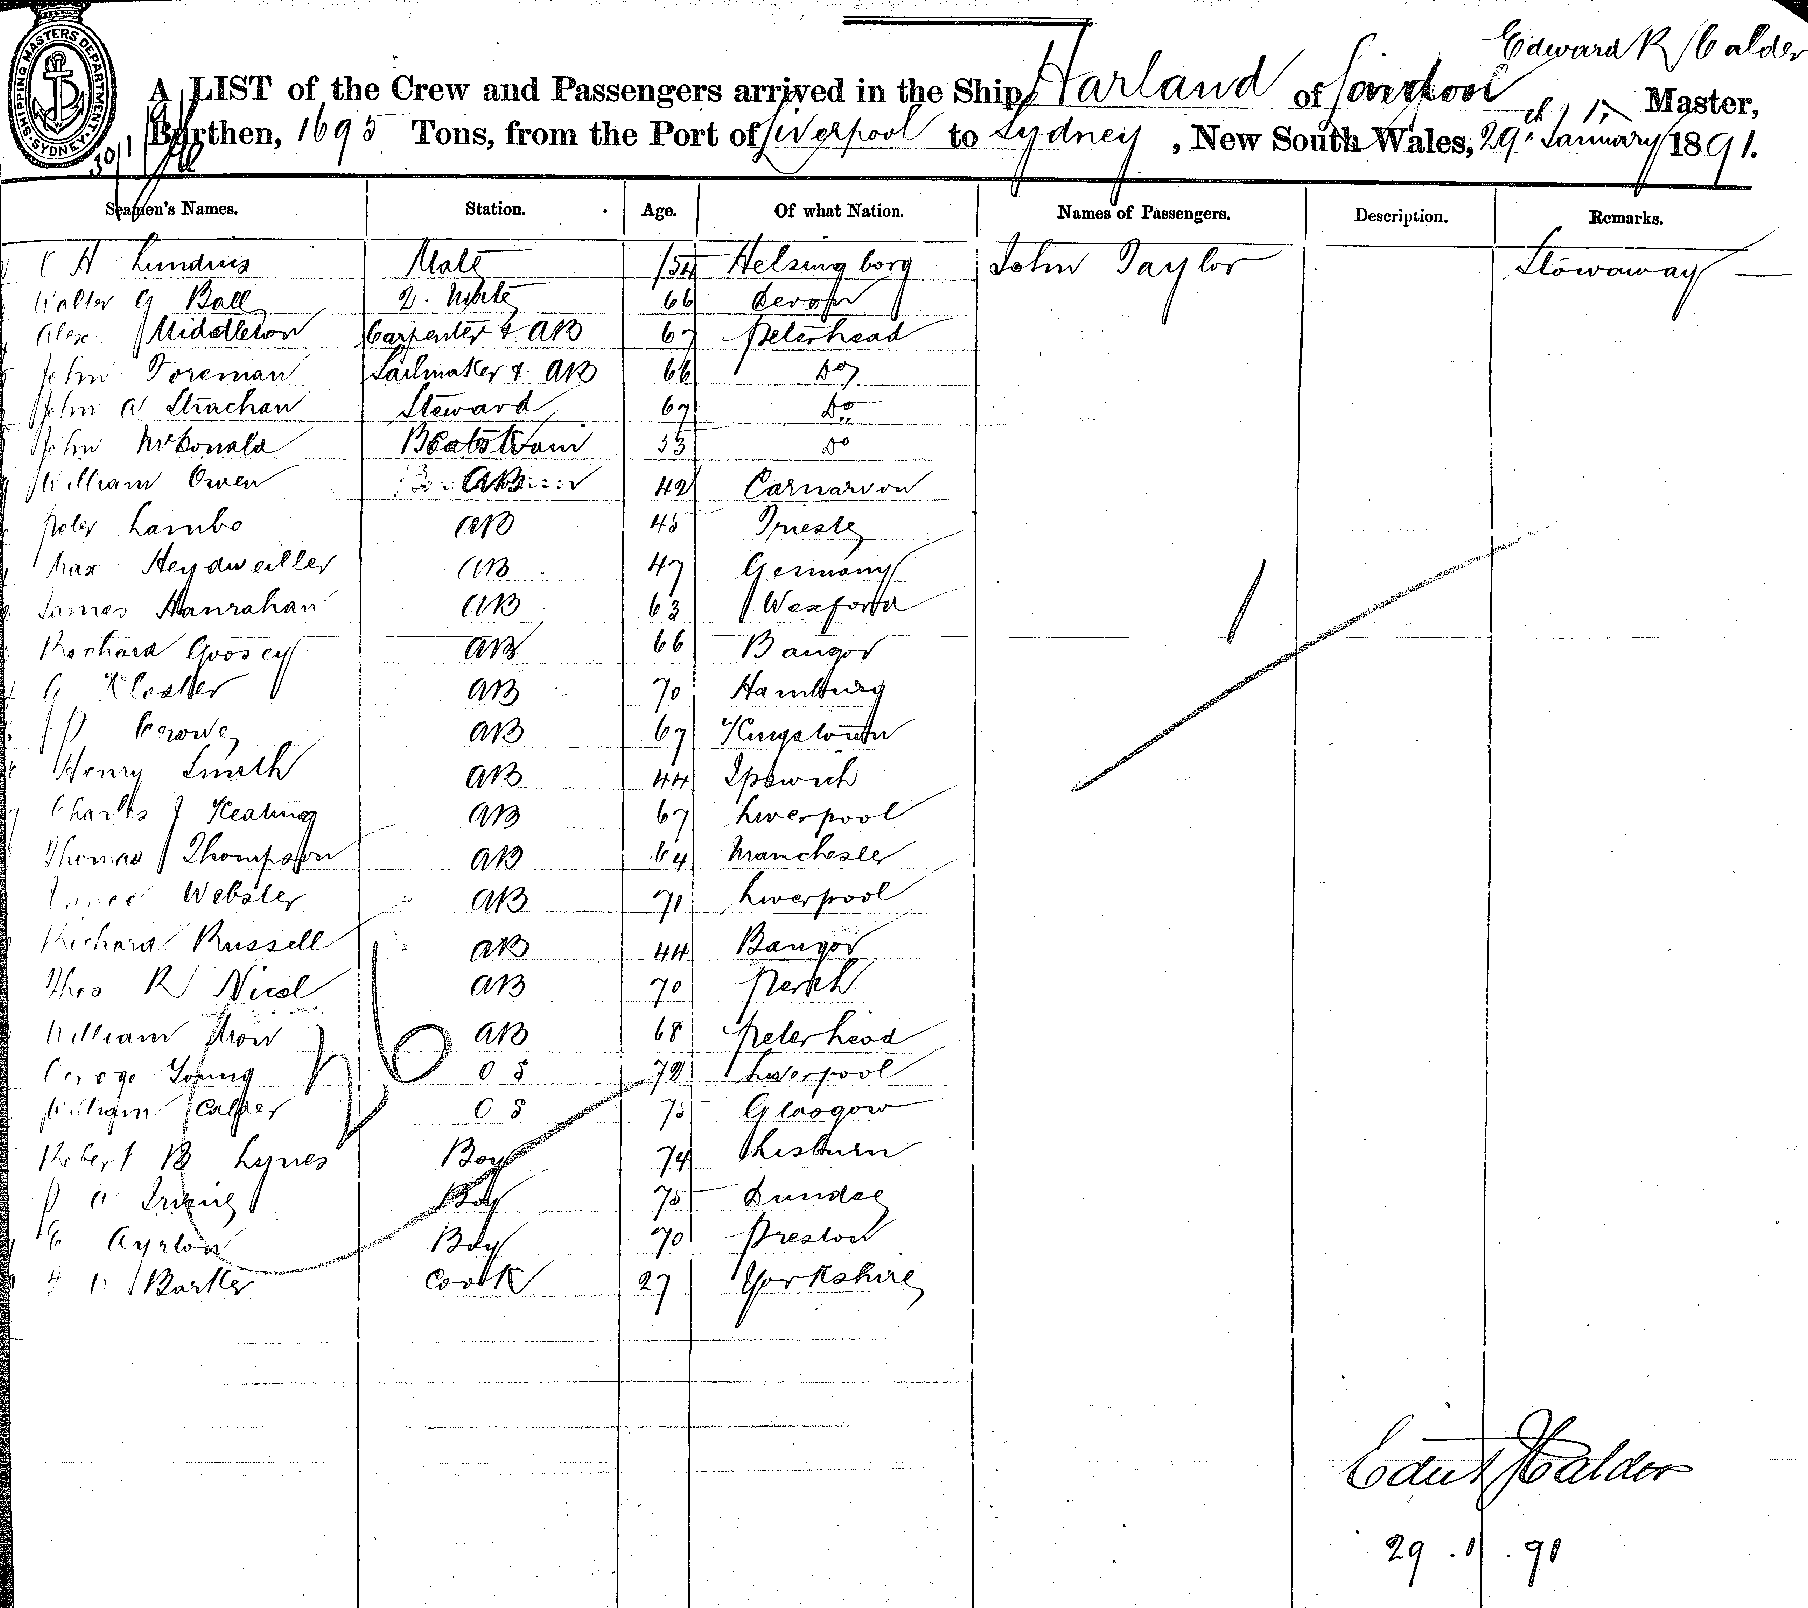 Edward R Calder
A LIST of the Crew and Passengers arrived in the Ship Harland of Liverpool Master,
Burthen, 1695 Tons, from the Port of Liverpool to Sydney, New South Wales, 29th January 1891.
SHIPPING MASTERS DEPARTMENT SYDNEY
30/1/91
Seamen's Names. Station. Age. Of what Nation. Names of Passengers. Description. Remarks.
C H Lundriis Mate /54 Helsingborg John Taylor Stowaway
Walter G Ball 2. Mate 66 Devon
Alex Middleton Carpenter & AB 67 Peterhead
John Foreman Sailmaker & AB 66 Do
John A Strachan Steward 67 Do
John McDonald Boatswain 33 Do
William Owen AB 42 Carnarvon
Peter Lambo AB 45 Trieste
Max Heydweiller AB 47 Germany
James Hanrahan AB 63 Wexford
Richard Goosey AB 66 Bangor
G Kloster AB 70 Hamburg
P Crowe AB 67 Kingstown
Henry Smith AB 44 Ipswich
Charles J Keating AB 67 Liverpool
Thomas Thompson AB 64 Manchester
Webster AB 71 Liverpool
Richard Russell AB 44 Bangor
Thos R Nicol AB 70 Perth
William AB 68 Peterhead
George Young O S 72 Liverpool
William Calder O S 75 Glasgow
Robert B Lynes Boy 74 Lisburn
P A Irving Boy 75 Dundee
E Ayrton Boy 70 Preston
Barker Cook 27 Yorkshire
26
1
Edw R Calder
29.1.91